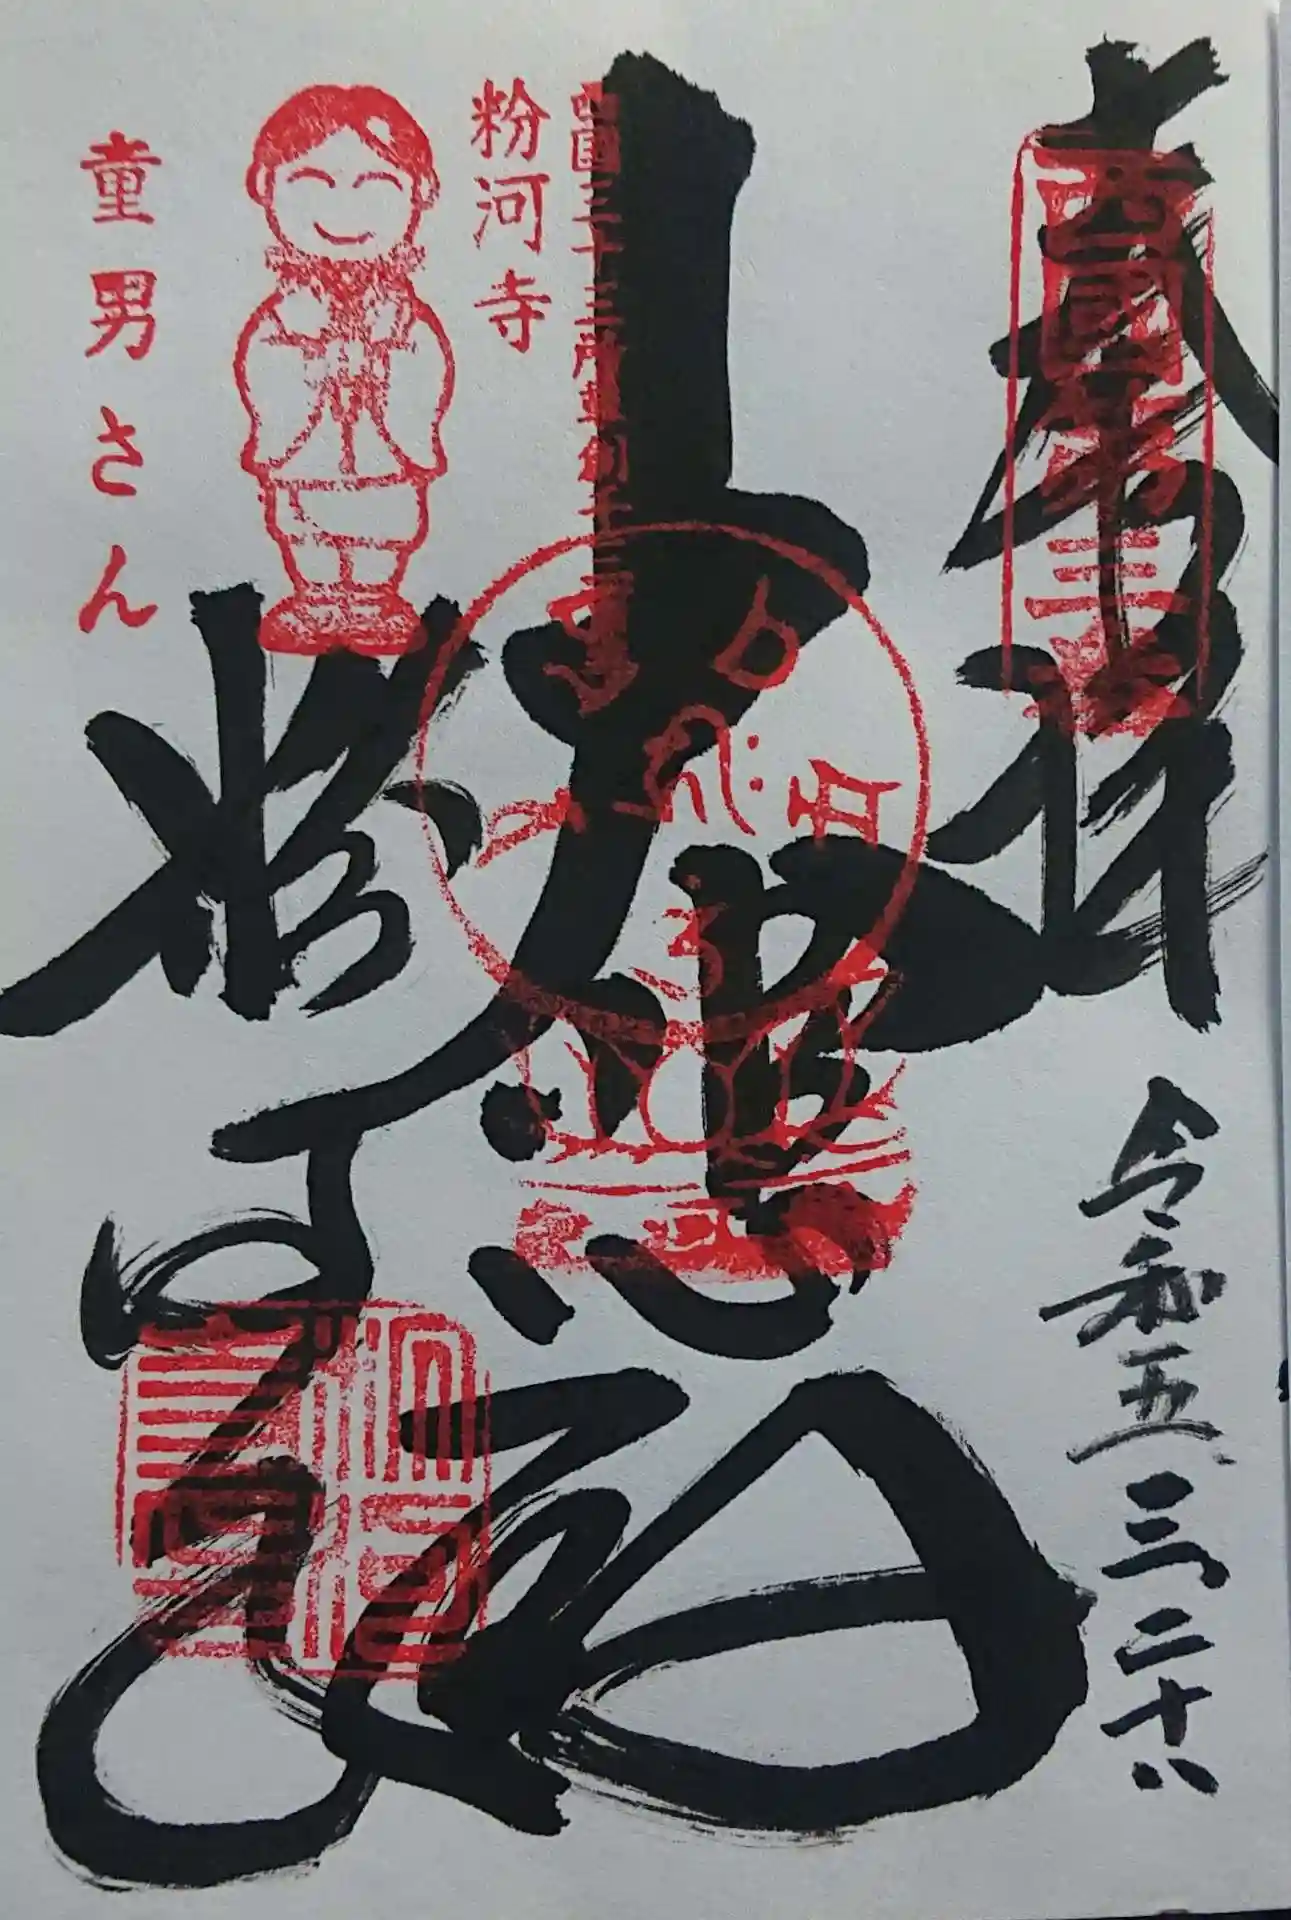 奉拝
西國第三番
令和五三二十八
大悲殿
西国三十三所草創千三
粉河寺
童男さん
粉河寺